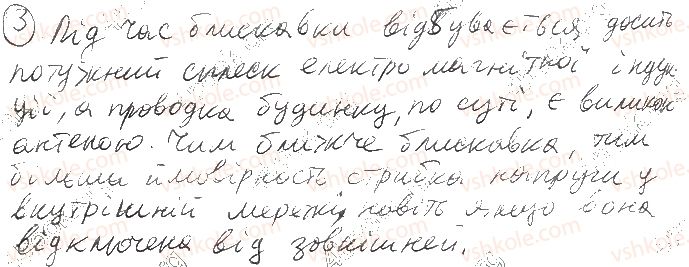 3 Під час блискавки відбувається досить
потужний сплеск електромагнітної індук
ції, а проводка будинку, по суті, є великою
антеною. Чим ближче блискавка, тим
більша ймовірность стрибка напруги у
внутрішній мережі, навіть якщо вона
відключена від зовнішней.